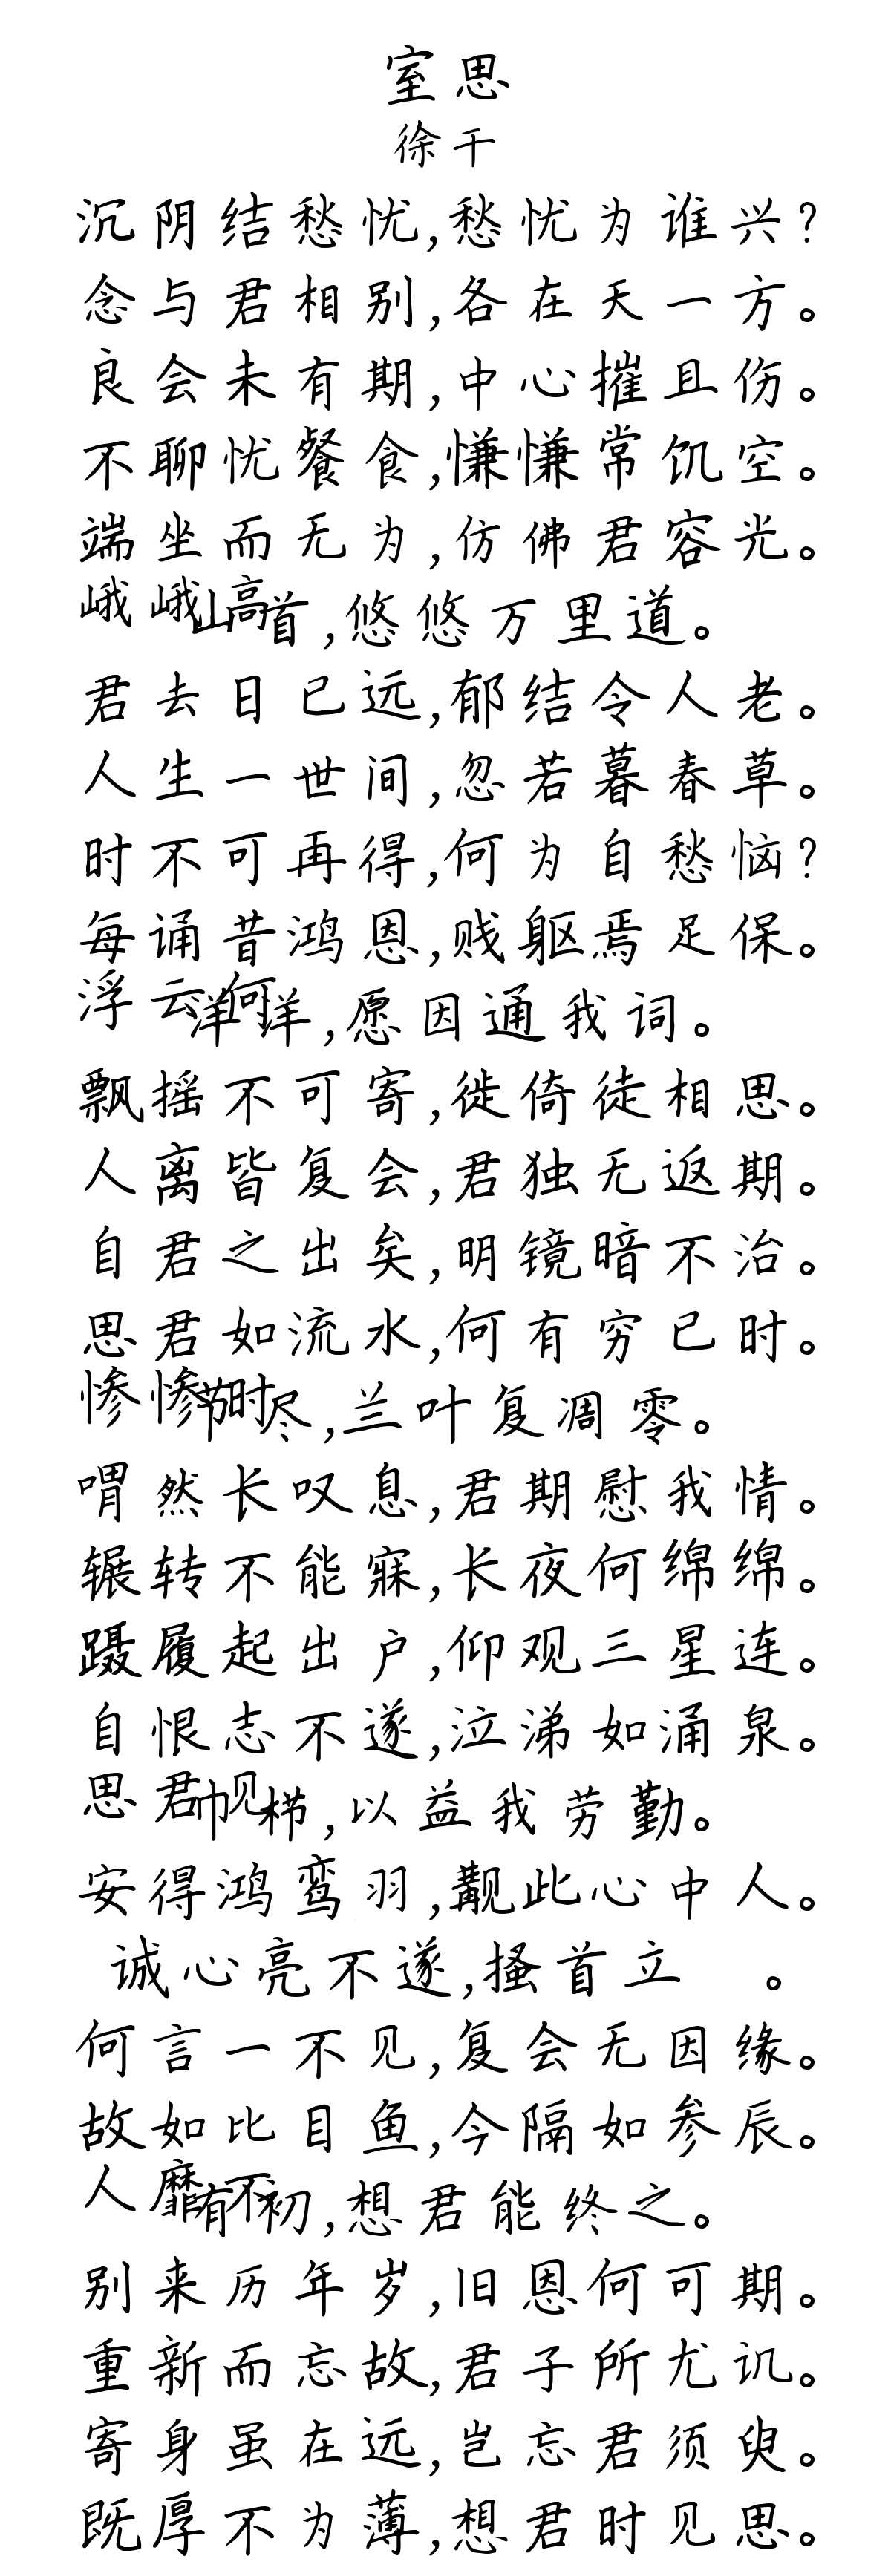 室思
徐干
沉阴结愁忧,愁忧为谁兴?
念与君相别,各在天一方。
良会未有期,中心摧且伤。
不聊忧餐食,慊慊常饥空。
端坐而无为,仿佛君容光。
峨峨高山首,悠悠万里道。
君去日已远,郁结令人老。
人生一世间,忽若暮春草。
时不可再得,何为自愁恼?
每诵昔鸿恩,贱躯焉足保。
浮云何洋洋,愿因通我词。
飘摇不可寄,徙倚徒相思。
人离皆复会,君独无返期。
自君之出矣,明镜暗不治。
思君如流水,何有穷已时。
惨惨时节尽,兰叶复凋零。
喟然长叹息,君期慰我情。
辗转不能寐,长夜何绵绵。
蹑履起出户,仰观三星连。
自恨志不遂,泣涕如涌泉。
思君见巾栉,以益我劳勤。
安得鸿鸾羽,觏此心中人。
诚心亮不遂,搔首立 。
何言一不见,复会无因缘。
故如比目鱼,今隔如参辰。
人靡不有初,想君能终之。
别来历年岁,旧恩何可期。
重新而忘故,君子所尤讥。
寄身虽在远,岂忘君须臾。
既厚不为薄,想君时见思。